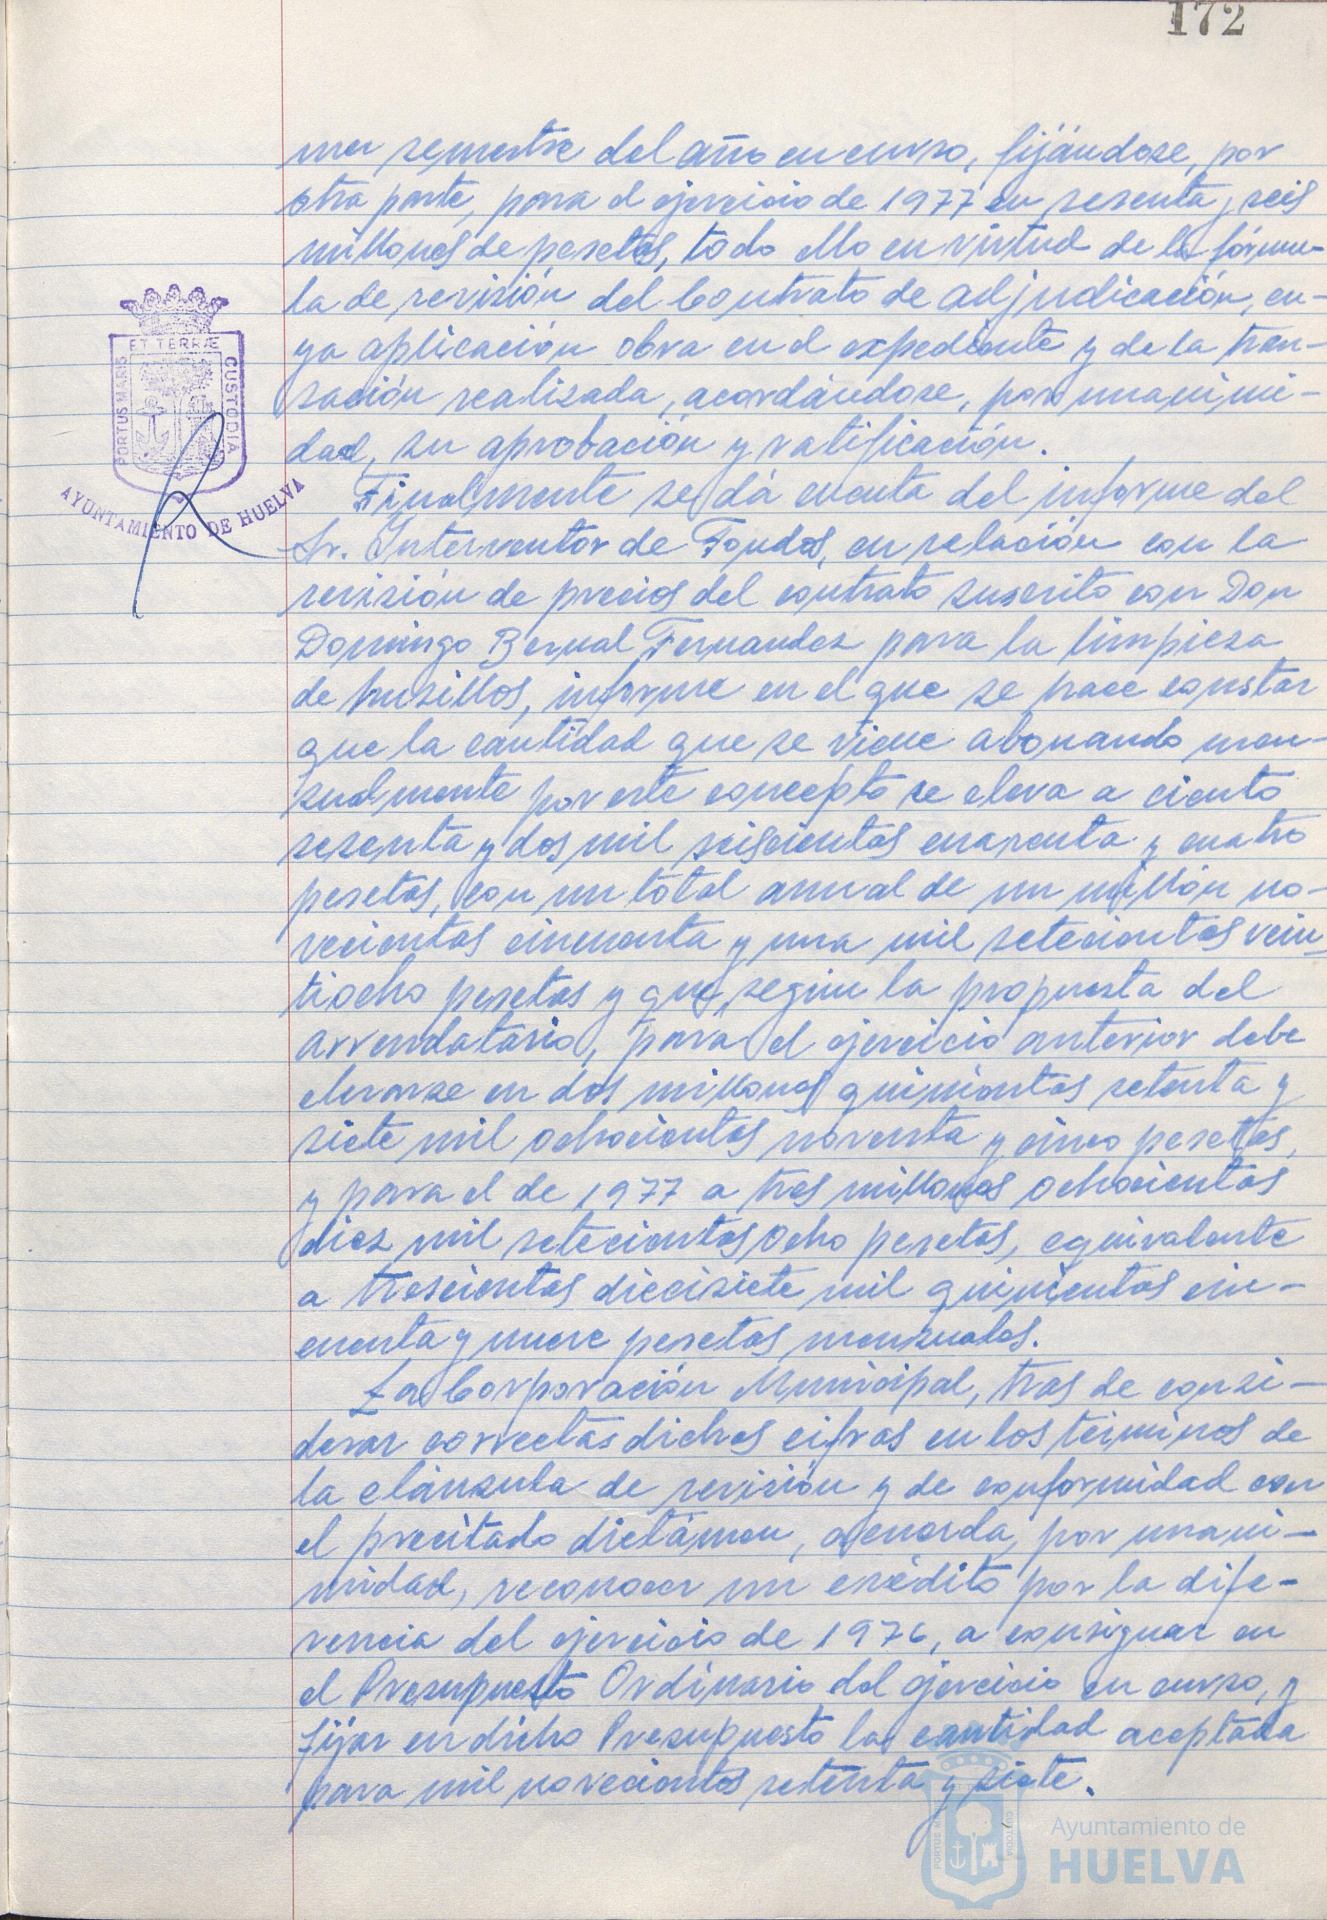 172
mer semestre del año en curso, fijándose, por
otra parte, para el ejercicio de 1977 en sesenta y seis
millones de pesetas, todo ello en virtud de la fórmu-
la de revisión del Contrato de adjudicación, cu-
ya aplicación obra en el expediente y de la tran-
sación realizada, acordándose, por unanimi-
dad, su aprobación y ratificación.
Finalmente se dá cuenta del informe del
Sr. Interventor de Fondos, en relación con la
revisión de precios del contrato suscrito con Don
Domingo Bernal Fernandez para la limpieza
de husillos, informe en el que se hace constar
que la cantidad que se viene abonando men-
sualmente por este concepto se eleva a ciento
sesenta y dos mil seiscientas cuarenta y cuatro
pesetas, con un total anual de un millón no-
vecientas cincuenta y una mil setecientas vein-
tiocho pesetas y que, según la propuesta del
arrendatario, para el ejercicio anterior debe
elevarse en dos millones quinientas setenta y
siete mil ochocientas noventa y cinco pesetas,
y para el de 1977 a tres millones ochocientas
diez mil setecientas ocho pesetas, equivalente
a trescientas diecisiete mil quinientas cin-
cuenta y nueve pesetas mensuales.
La Corporación Municipal, tras de consi-
derar correctas dichas cifras en los términos de
la cláusula de revisión y de conformidad con
el precitado dictámen, acuerda, por unani-
midad, reconocer un crédito por la dife-
rencia del ejercicio de 1976, a consignar en
el Presupuesto Ordinario del ejercicio en curso, y
fijar en dicho Presupuesto la cantidad aceptada
para mil novecientos setenta y siete.
PORTUS MARIS ET TERRÆ CUSTODIA
AYUNTAMIENTO DE HUELVA
Ayuntamiento de
HUELVA